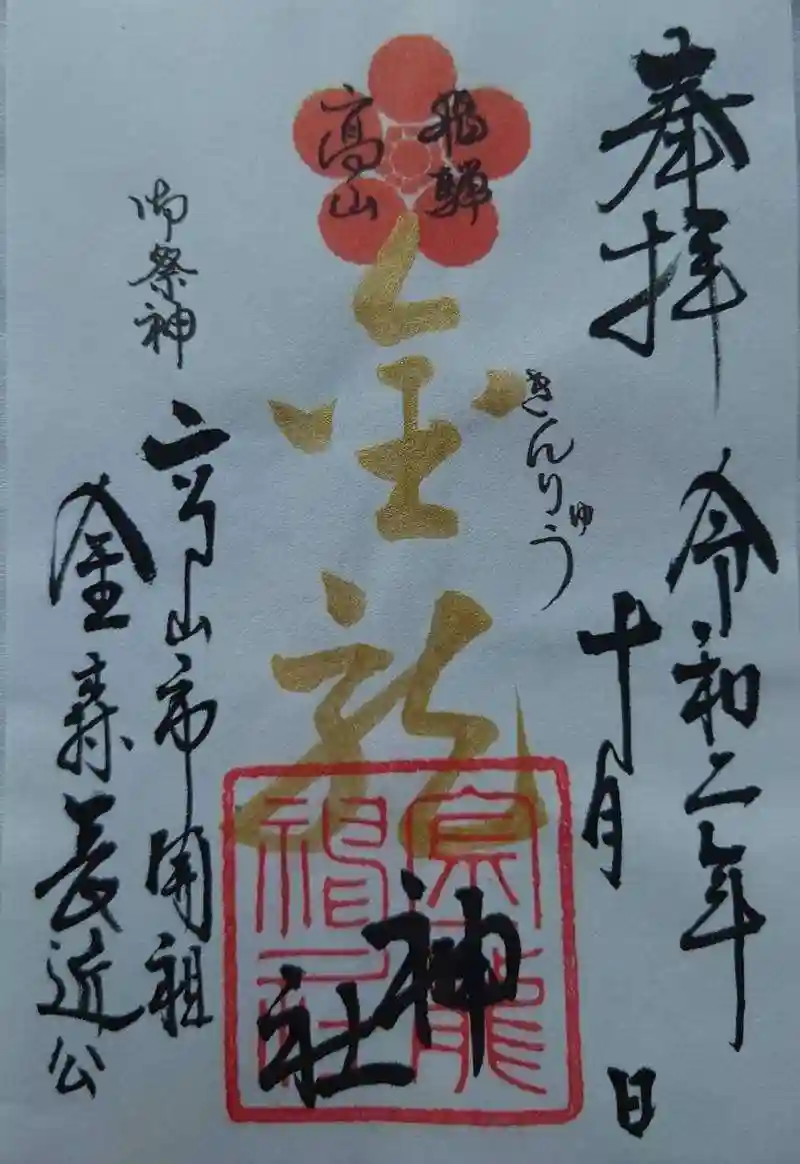 奉拝
令和二年
十月 日
飛騨
高山
金龍
きんりゅう
神社
金龍神社
御祭神
高山市開祖
金森長近公